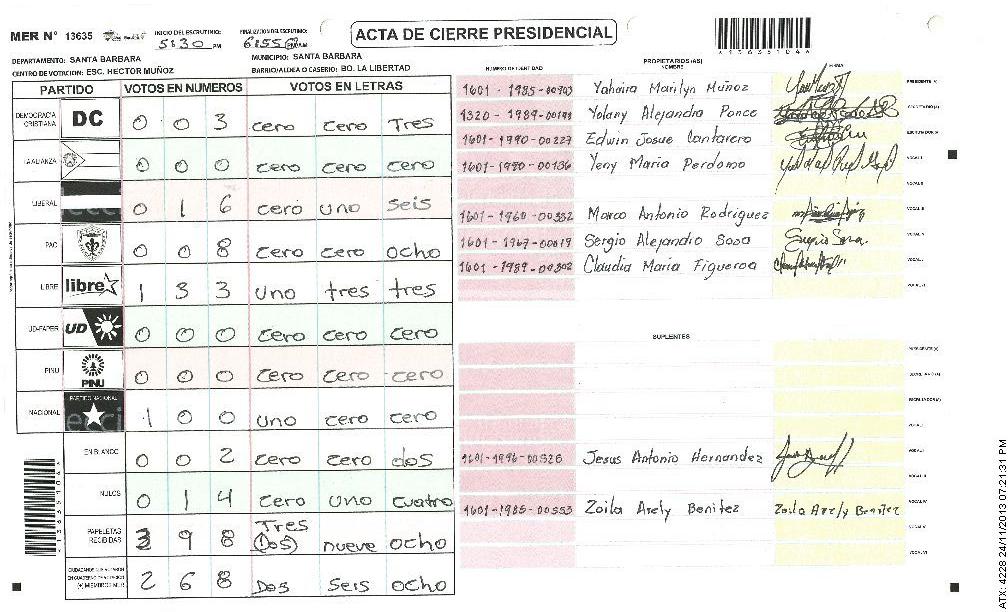 MER N° 13635
INICIO DEL ESCRUTINIO: 5:30 PM
FINALIZACION DEL ESCRUTINIO: 6:55 PM/AM
ACTA DE CIERRE PRESIDENCIAL
* 1 3 6 3 5 1 0 4 *
DEPARTAMENTO: SANTA BARBARA
MUNICIPIO: SANTA BARBARA
CENTRO DE VOTACION: ESC. HECTOR MUÑOZ
BARRIO/ALDEA O CASERIO: BO. LA LIBERTAD
PARTIDO VOTOS EN NUMEROS VOTOS EN LETRAS
DEMOCRACIA CRISTIANA DC 0 0 3 cero cero Tres
LA ALIANZA 0 0 0 cero cero cero
LIBERAL 0 1 6 cero uno seis
PAC 0 0 8 cero cero ocho
LIBRE libre 1 3 3 uno tres tres
UD-FAPER UD 0 0 0 cero cero cero
PINU PINU 0 0 0 cero cero cero
NACIONAL PARTIDO NACIONAL 1 0 0 uno cero cero
EN BLANCO 0 0 2 cero cero dos
NULOS 0 1 4 cero uno cuatro
PAPELETAS RECIBIDAS 3 9 8 Tres (Dos) nueve ocho
2 6 8 Dos seis ocho
NUMERO DE IDENTIDAD
PROPIETARIOS (AS)
NOMBRE
FIRMA
Yahaira Marilyn Muñoz PRESIDENTE (A)
Yolany Alejandra Ponce SECRETARIO (A)
1601-1990-00227 Edwin Josue Cantarero ESCRUTADOR (A)
1601-1990-00136 Yeny Maria Perdomo VOCAL I
VOCAL II
1601-1960-00332 Marco Antonio Rodriguez VOCAL III
1601-1967-00019 Sergio Alejandro Sosa VOCAL IV
1601-1989-00302 Claudia Maria Figueroa VOCAL V
VOCAL VI
SUPLENTES
PRESIDENTE (A)
SECRETARIO (A)
ESCRUTADOR (A)
VOCAL I
1601-1996-00326 Jesus Antonio Hernandez VOCAL II
VOCAL III
1601-1985-00553 Zoila Arely Benitez Zoila Arely Benitez VOCAL IV
VOCAL V
VOCAL VI
ATX: 4228 24/11/2013 07:21:31 PM